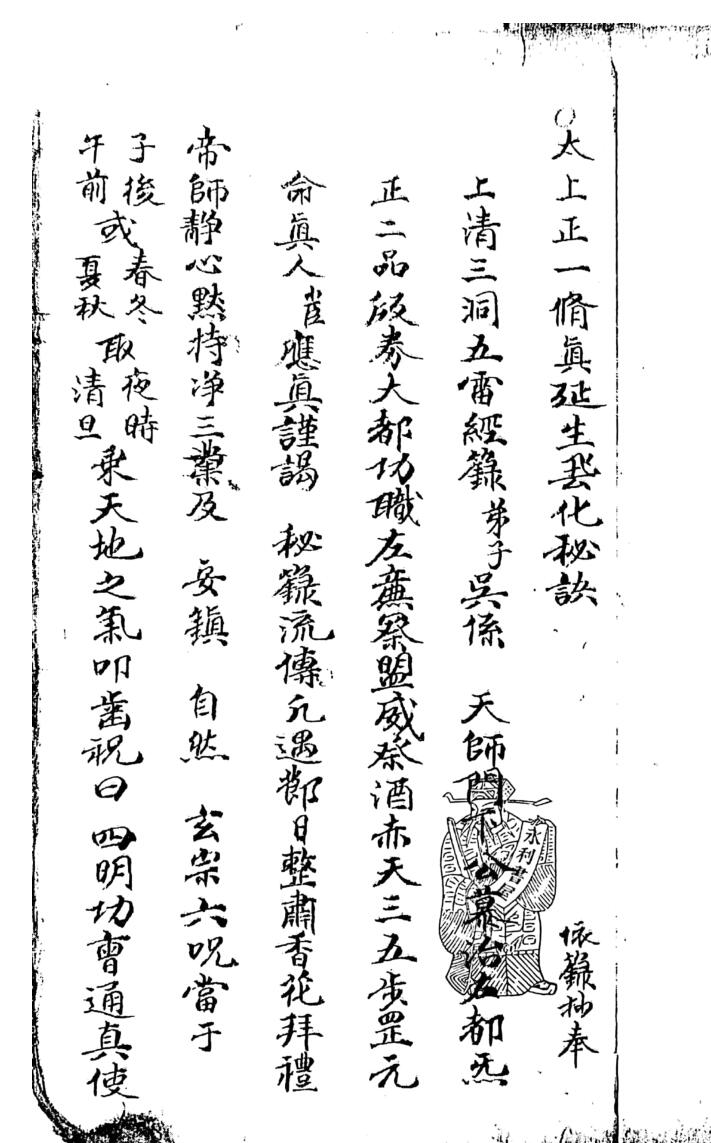 ○太上正一脩眞延生飛化秘訣
依籙抄奉
上清三洞五雷經籙弟子吳係　天師門下公慕治左都炁
正二品版券大都功職左亷察盟威祭酒赤天三五步罡元
命眞人崔應眞謹謁　秘籙流傳凢遇節日整肅香花拜禮
帝師静心黙持净三業及　安鎮　自然　玄宗六呪當于
子後午前或春冬夏秋取夜時清旦乘天地之氣叩齒祝曰　四明功曹通真使
永利書屋